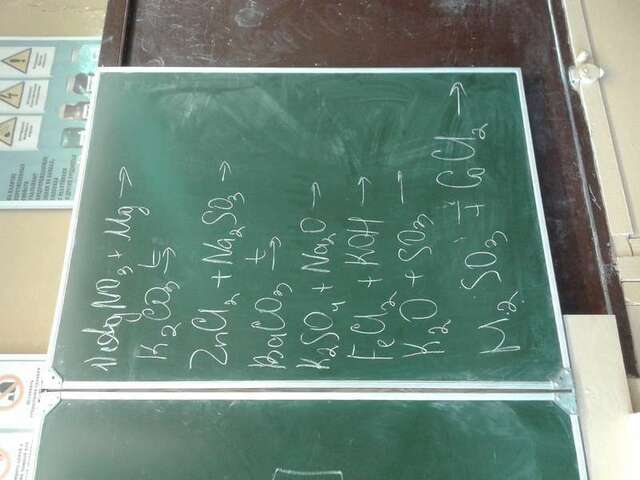 1) AgNO₃ + Mg →
K₂CO₃ t→
ZnCl₂ + Na₂SO₃ →
BaCO₃ t→
K₂SO₄ + Na₂O →
FeCl₂ + KOH →
K₂O + SO₃ —
H₂SO₃ + CaCl₂ →